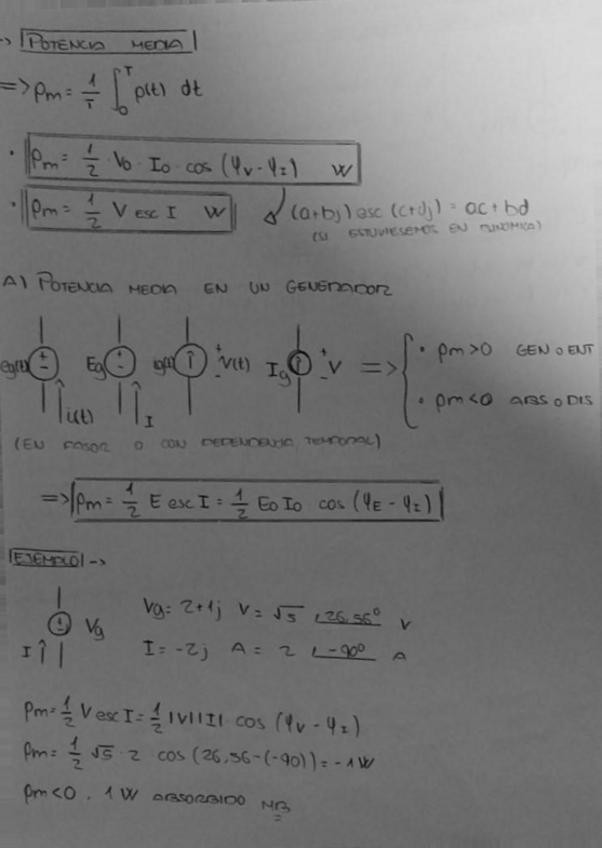 -> POTENCIA MEDIA
=> Pm = 1/T ∫₀ᵀ p(t) dt
· Pm = 1/2 · Vo · Io · cos (φv - φI) W
· Pm = 1/2 V esc I W
(a+bj) esc (c+dj) = ac + bd
(SI ESTUVIESEMOS EN BINOMICA)
A) POTENCIA MEDIA EN UN GENERADOR
eg(t) + - i(t) Eg + - I ig(t) + V(t) - Ig + V - => { · pm>0 GEN o ENT
· pm<0 ABS o DIS
(EN FASOR O CON DEPENDENCIA TEMPORAL)
=> Pm = 1/2 E esc I = 1/2 Eo Io · cos (φE - φI)
EJEMPLO ->
Vg I
Vg = 2+1j V = √5 ∠26,56° V
I = -2j A = 2 ∠-90° A
Pm = 1/2 V esc I = 1/2 |V| |I| · cos (φv - φI)
Pm = 1/2 √5 · 2 cos (26,56-(-90)) = -1 W
Pm<0 . 1 W ABSORBIDO